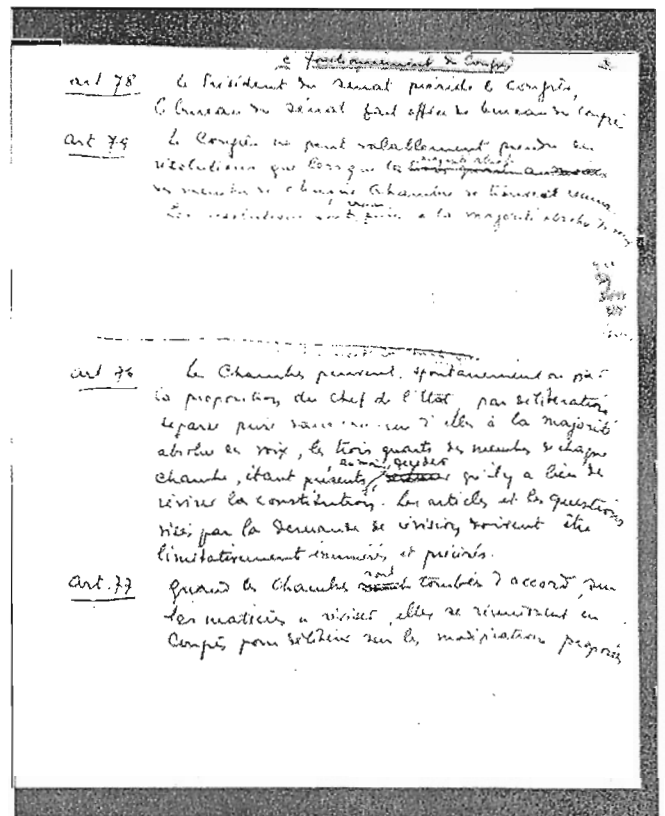 c fonctionnement du Congrès
art 78 Le Président du Sénat préside le Congrès,
le bureau du Sénat fait office de bureau du Congrès
art 79 Le Congrès ne peut valablement prendre
résolutions que lorsque les
des membres de chaque Chambre se trouvent réunis.
Les résolutions sont prises à la majorité absolue des voix
art 76 Les Chambres peuvent, spontanément ou sur
la proposition du Chef de l'Etat, par délibération
séparée prise dans chacune d'elles à la majorité
absolue des voix, les trois quarts des membres de chaque
chambre, étant présents, au moins, décider qu'il y a lieu de
réviser la constitution. Les articles et les questions
visés par la demande de révision doivent être
limitativement énumérés et précisés.
Art. 77 Quand les Chambres sont tombées d'accord, sur
les matières à réviser, elles se réunissent en
Congrès pour délibérer sur les modifications proposées